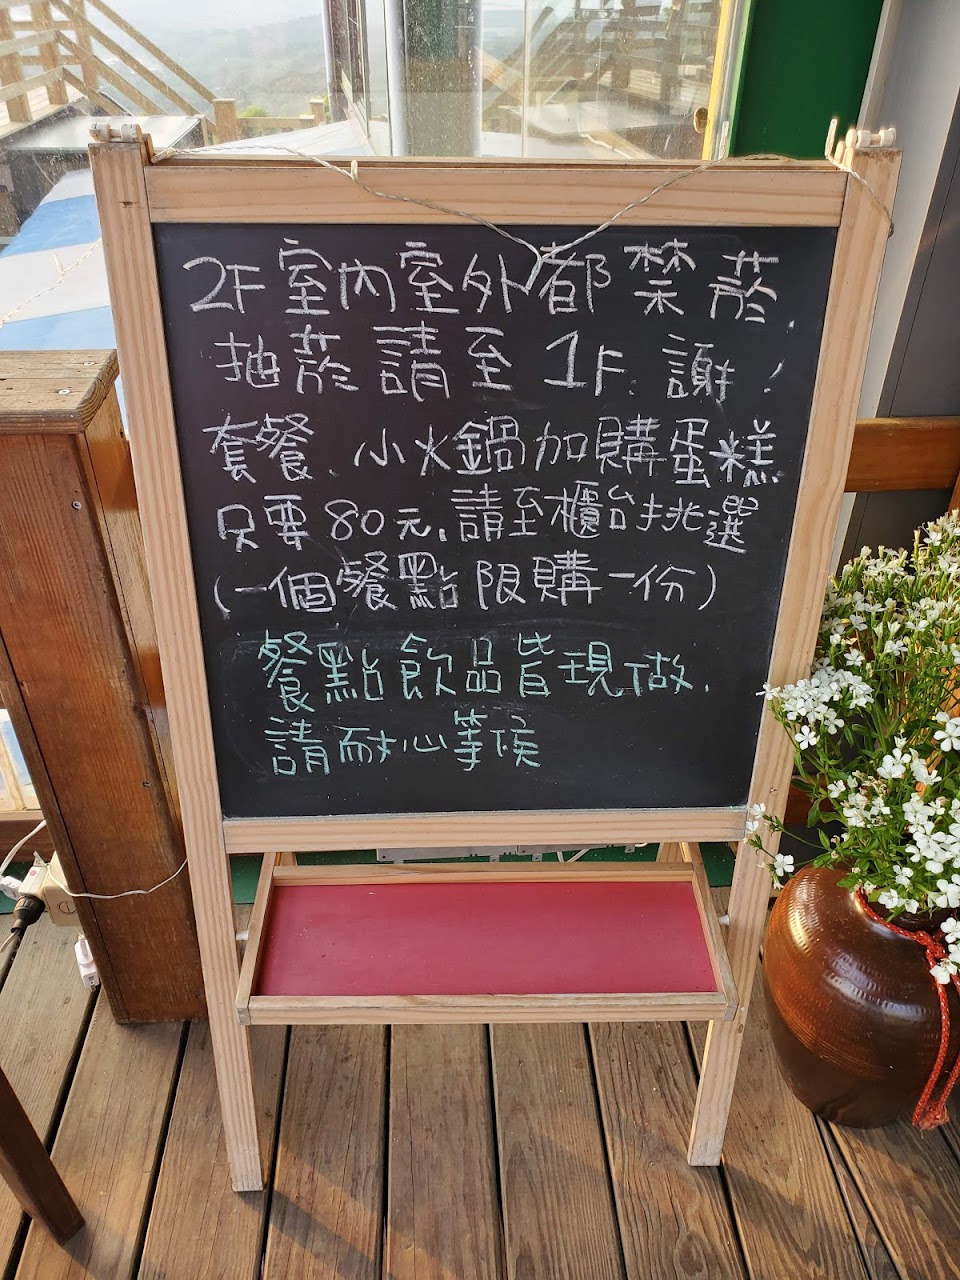 2F室內室外都禁菸.
抽菸請至1F.謝!
套餐、小火鍋加購蛋糕
只要80元,請至櫃台挑選
(一個餐點限購一份)
餐點飲品皆現做.
請耐心等候